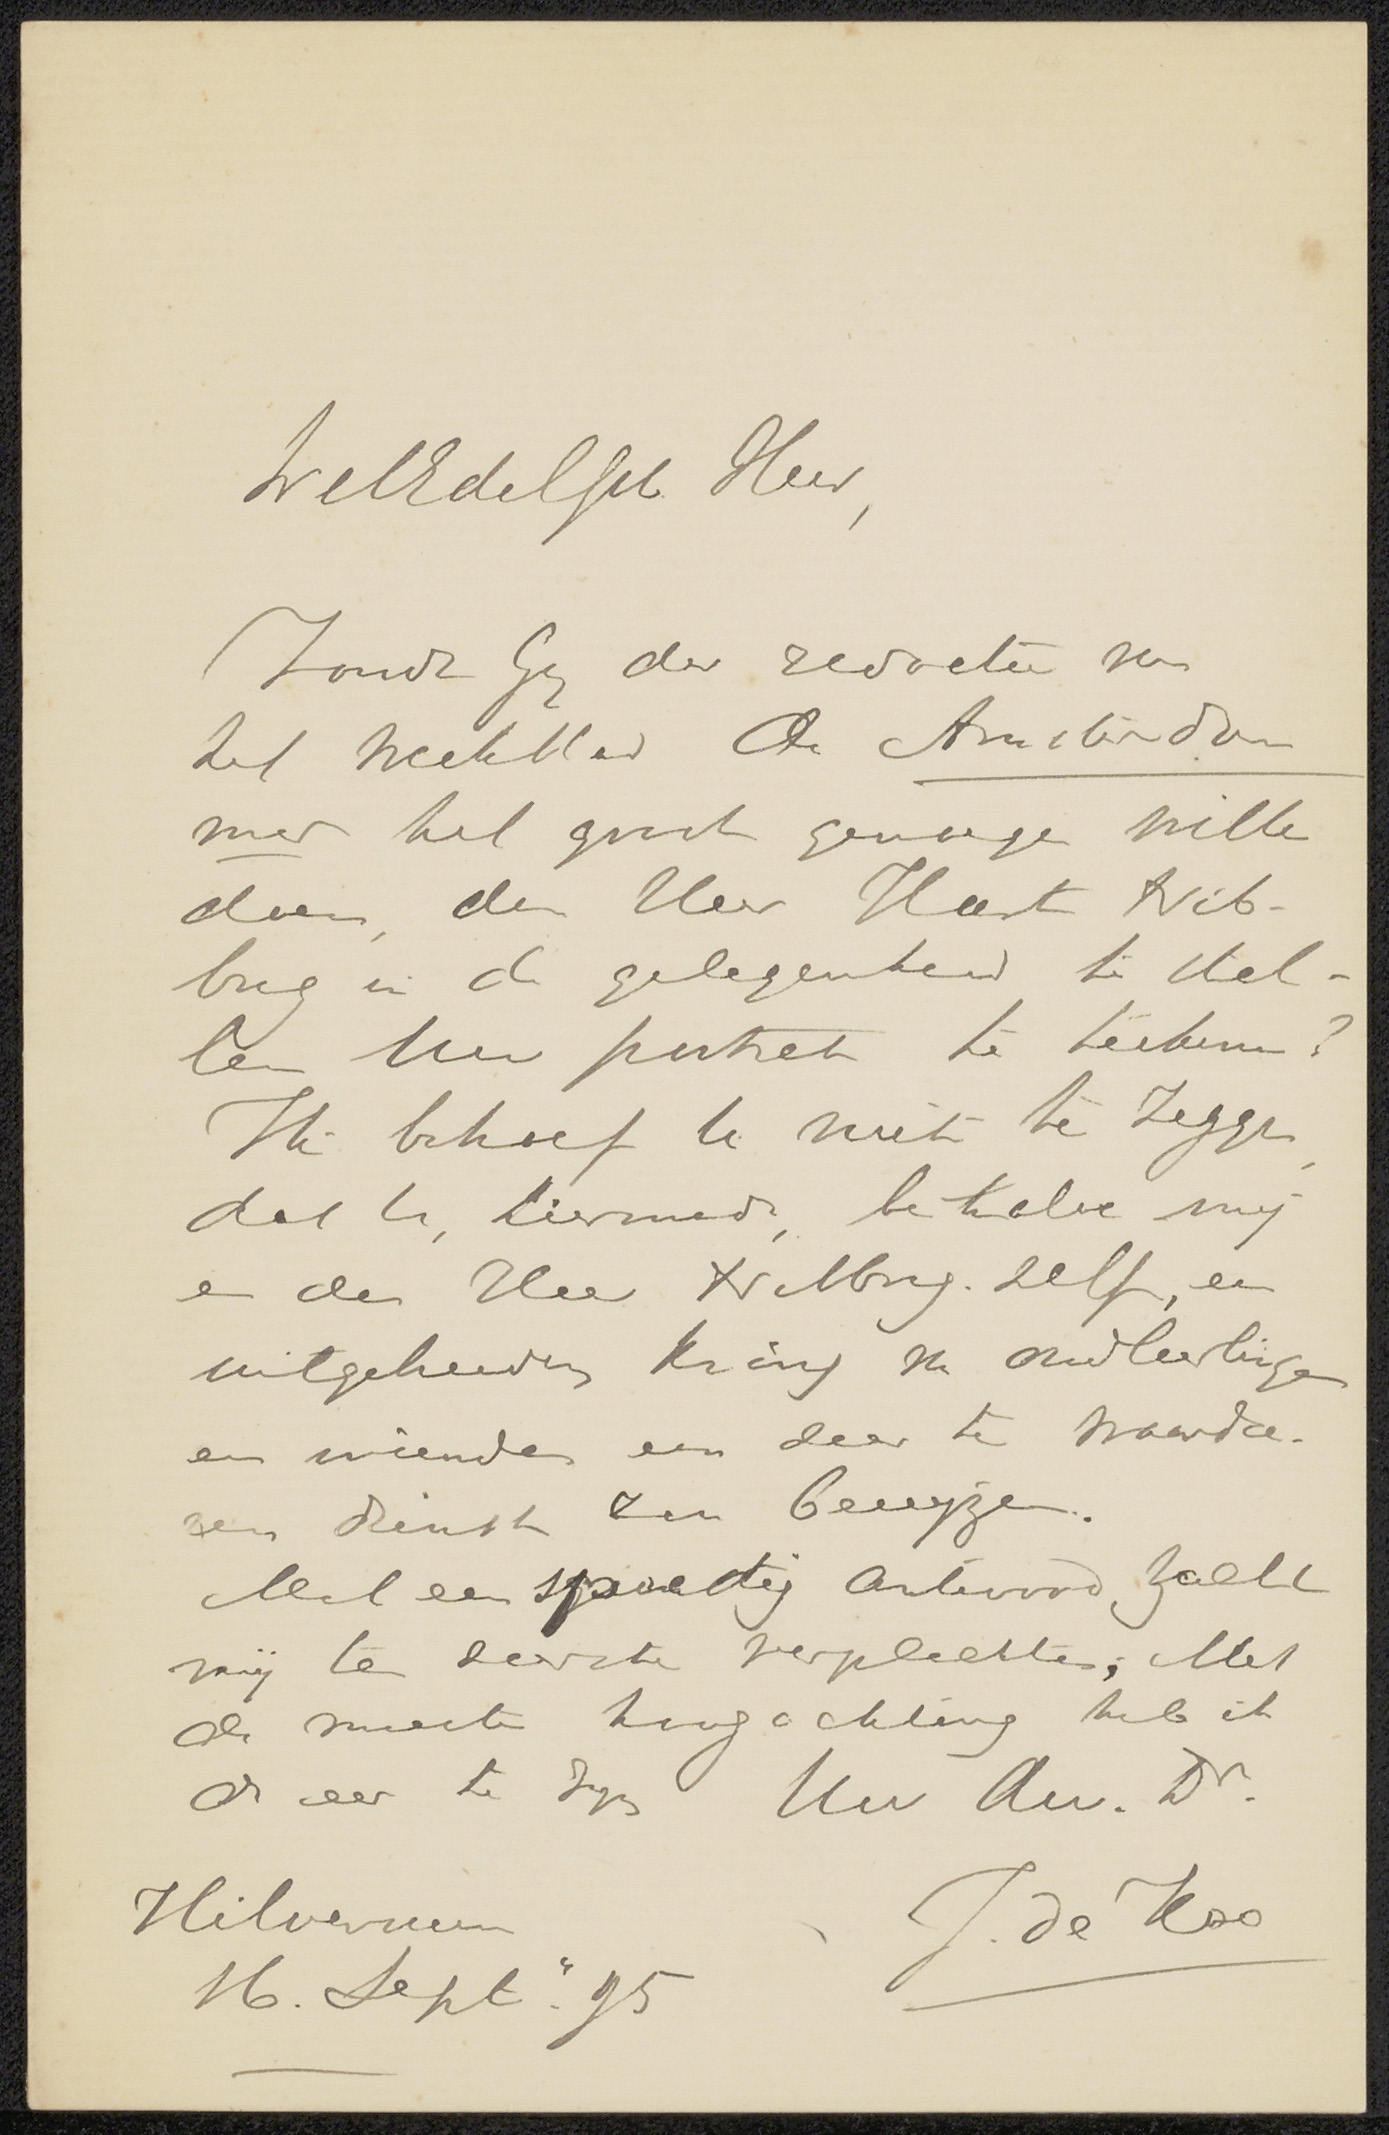 WelEdelgeb. Heer,
Zoudt Gij der redactie van
het weekblad De Amsterdam
mer het groot genoegen willen
doen, den Heer Haert Wib-
brug in de gelegenheid te stel-
len Uw portret te teekenen?
Ik behoef U niet te zeggen,
dat U, hiermede, behalve mij
en den Heer Wibbrug. zelf, een
uitgebreiden kring van oudleerlingen
en vrienden een zeer te waardee-
ren dienst zou bewijzen.
Met een spoedig antwoord zoudt
mij ten zeerste verplichten; Met
de meeste hoogachting heb ik
de eer te zijn Uw dw. Dr.
J. de Koo
Hilversum
16. Sept. 95